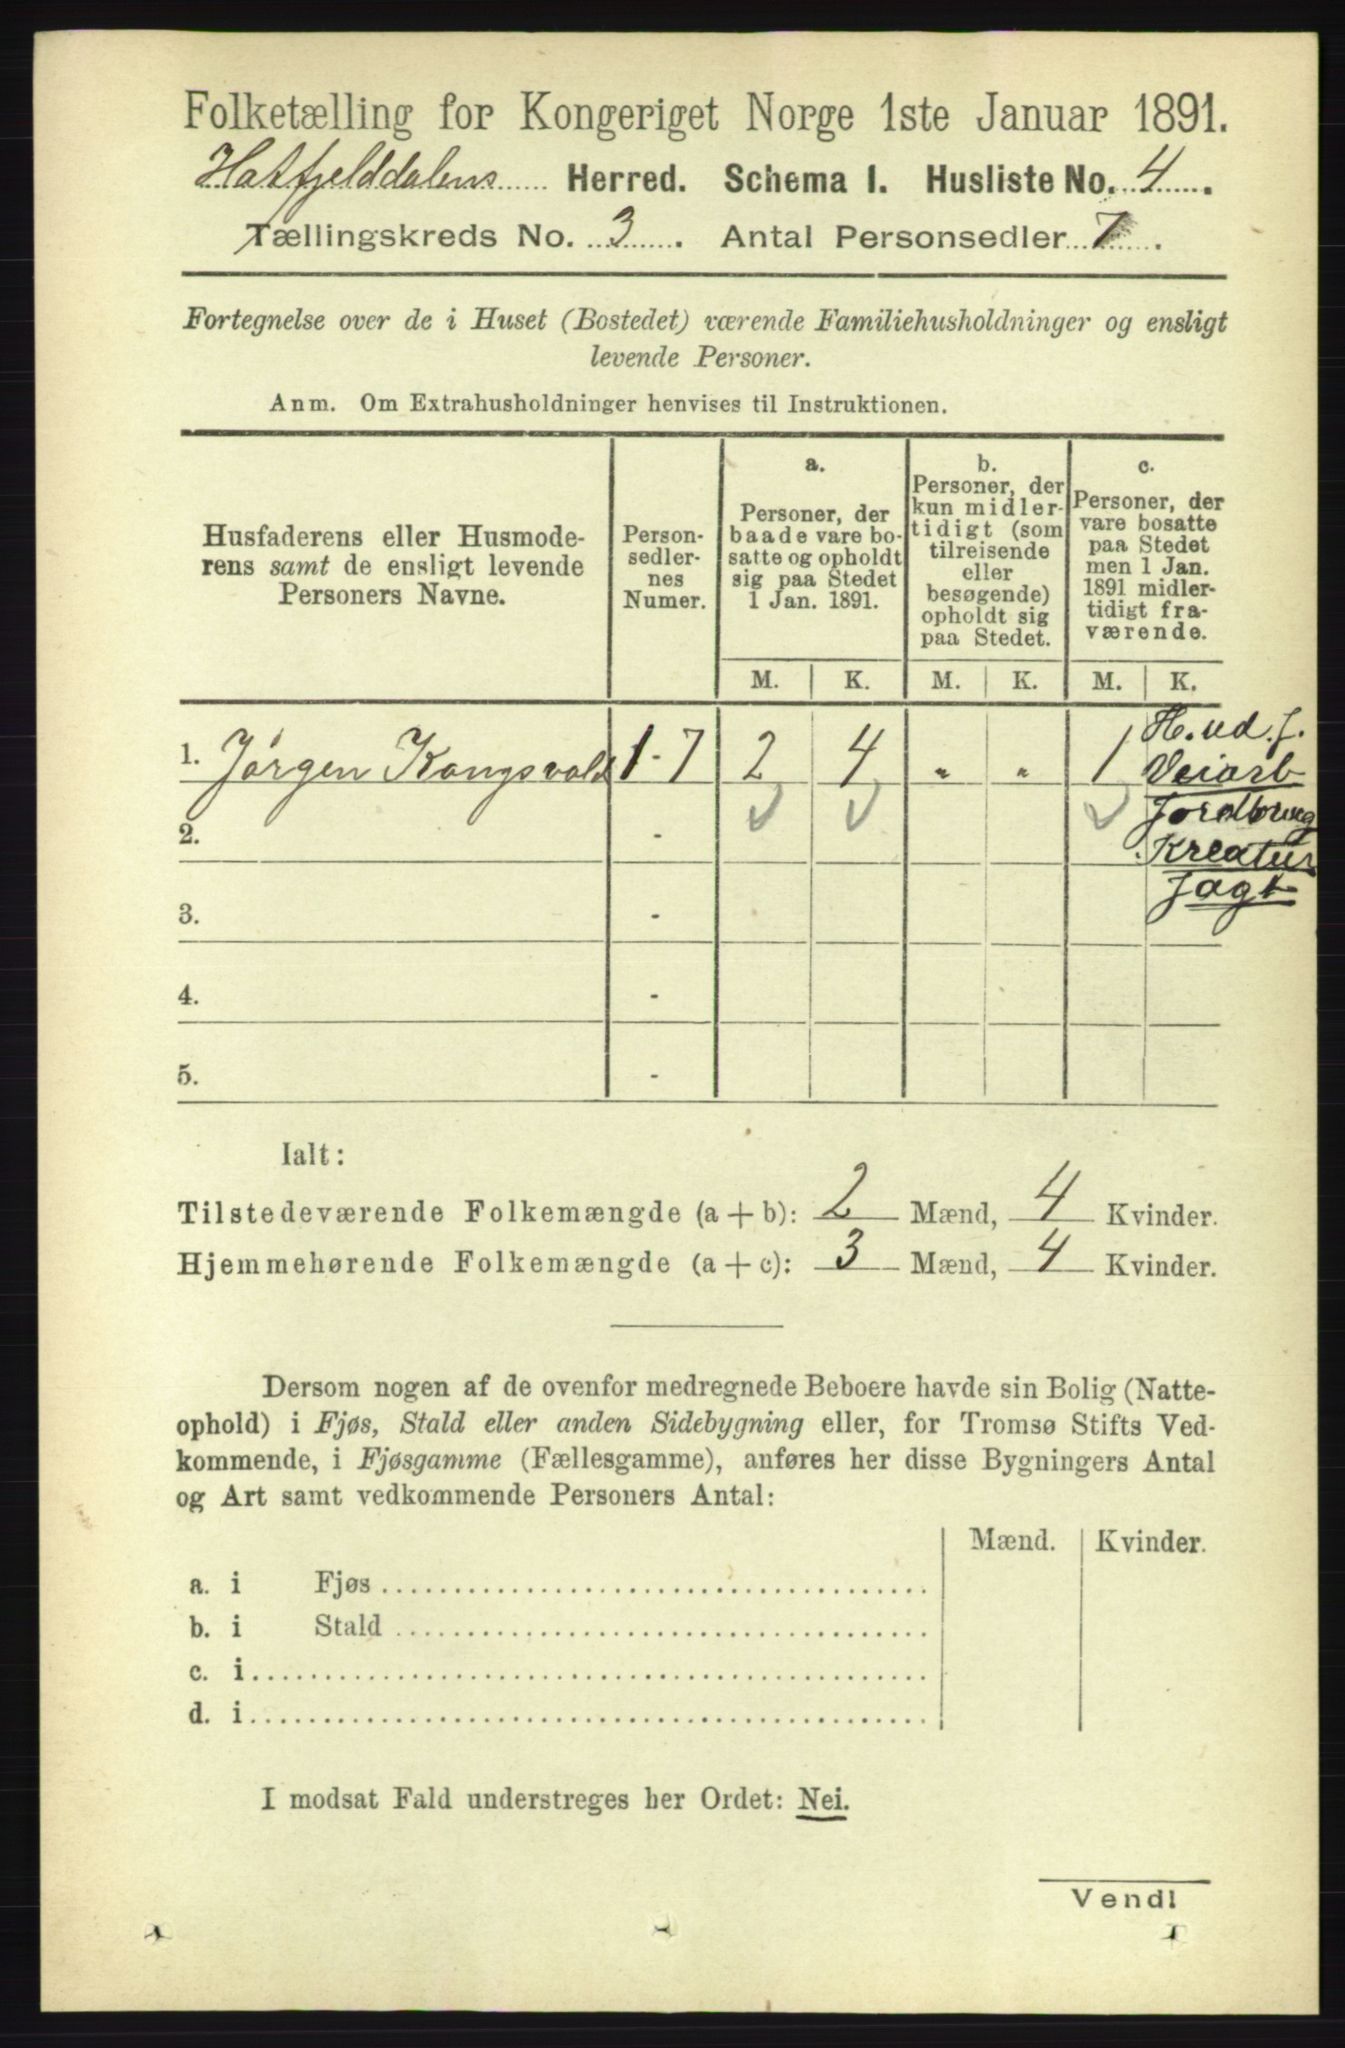 Folketælling for Kongeriget Norge 1ste Januar 1891.
Hatfjelddalens Herred. Schema I. Husliste No. 4.
Tællingskreds No. 3. Antal Personsedler 7.
Fortegnelse over de i Huset (Bostedet) værende Familiehusholdninger og ensligt
levende Personer.
Anm. Om Extrahusholdninger henvises til Instruktionen.
Husfaderens eller Husmode-
rens samt de ensligt levende
Personers Navne.
Person-
sedler-
nes
Numer.
a.
Personer, der
baade vare bo-
satte og opholdt
sig paa Stedet
1 Jan. 1891.
b.
Personer, der
kun midler-
tidigt (som
tilreisende
eller
besøgende)
opholdt sig
paa Stedet.
c.
Personer, der
vare bosatte
paa Stedet
men 1 Jan.
1891 midler-
tidigt fra-
værende.
M. K. M. K. M. K.
1. Jörgen Kongsvold 1-7 2 4 " " 1
H. ud. f.
Veiarb
Jordbrug
Kreatur
Jagt
2. -
3. -
4. -
5. -
Ialt:
Tilstedeværende Folkemængde (a + b): 2 Mænd, 4 Kvinder.
Hjemmehørende Folkemængde (a + c): 3 Mænd, 4 Kvinder.
Dersom nogen af de ovenfor medregnede Beboere havde sin Bolig (Natte-
ophold) i Fjøs, Stald eller anden Sidebygning eller, for Tromsø Stifts Ved-
kommende, i Fjøsgamme (Fællesgamme), anføres her disse Bygningers Antal
og Art samt vedkommende Personers Antal:
Mænd. Kvinder.
a. i Fjøs
b. i Stald
c. i
d. i
I modsat Fald understreges her Ordet: Nei.
Vend!